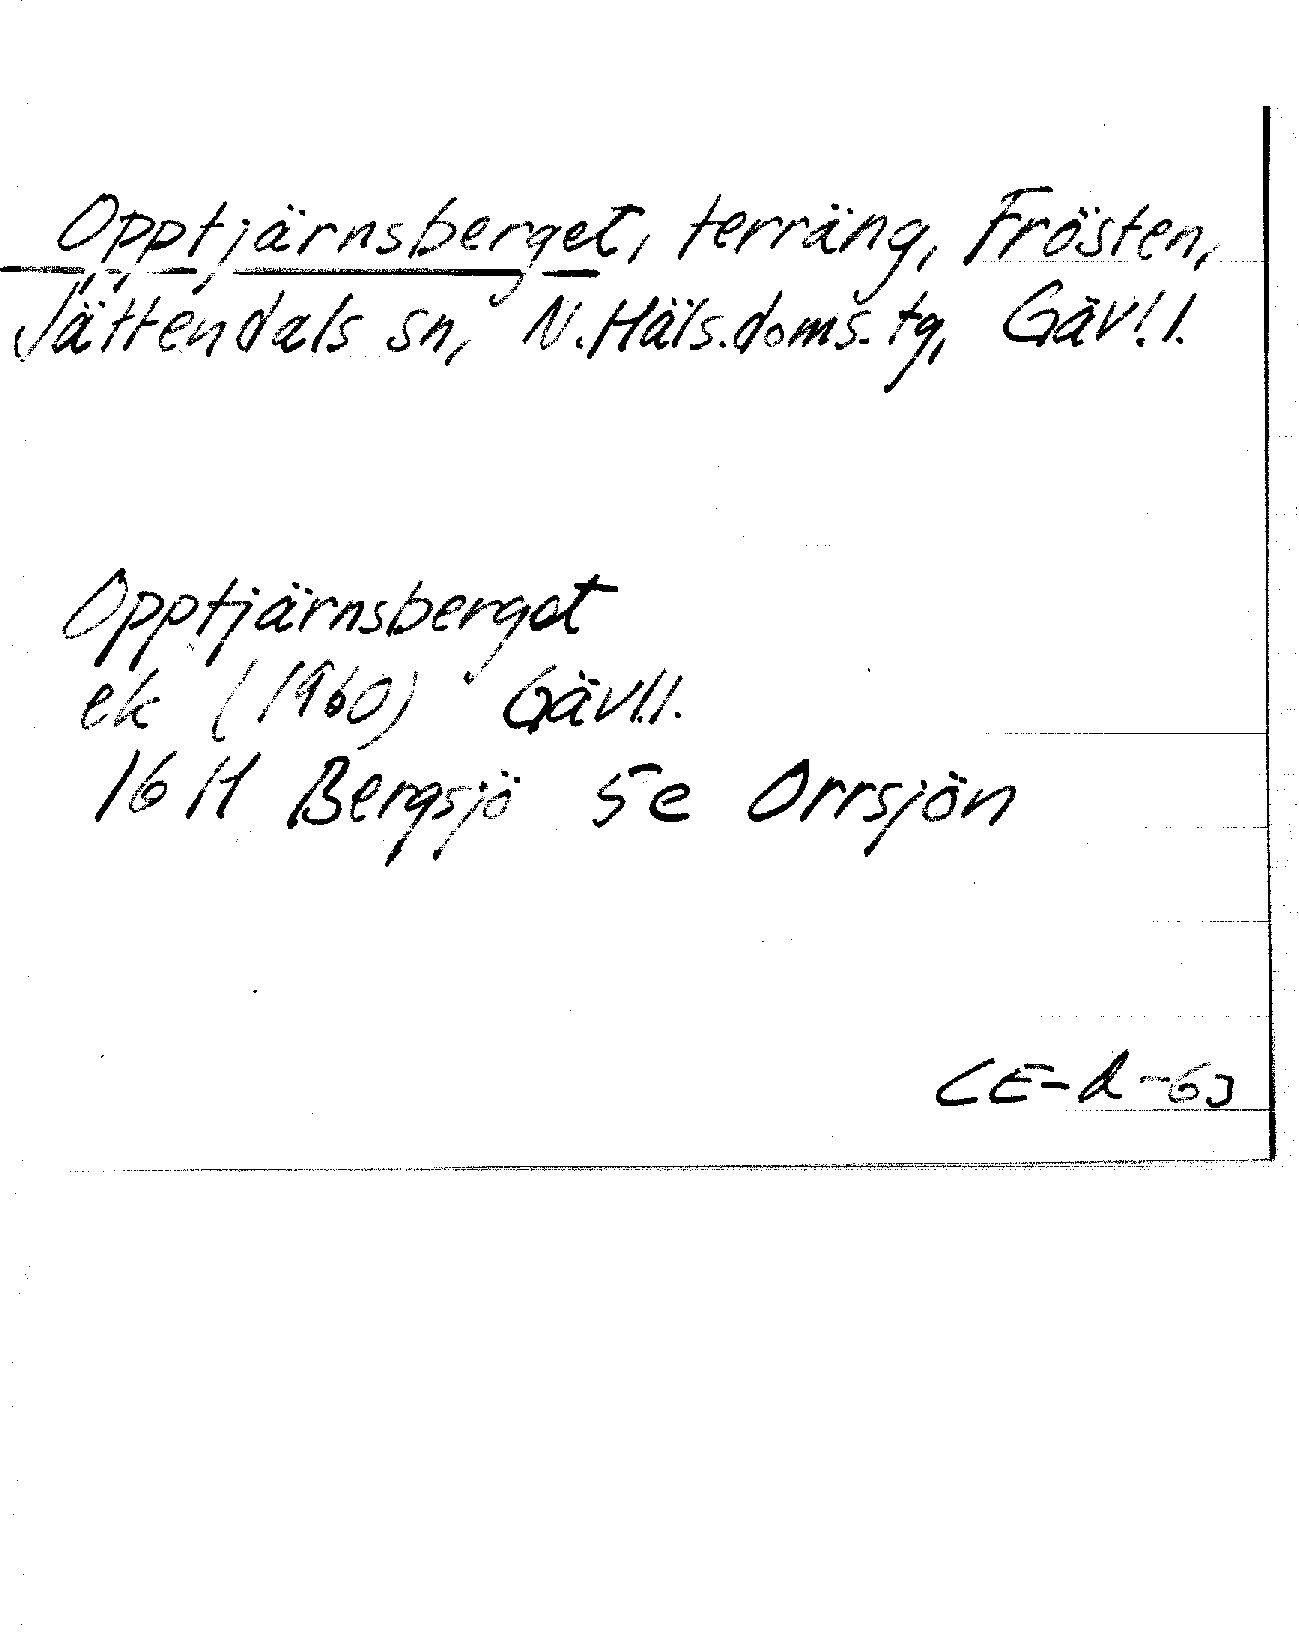 Opptjärnsberget, terräng, Frösten,
Jättendals sn, N.Häls.doms.tg, Gävl.l.
Opptjärnsberget
ek (1960) Gävl.l.
16 H Bergsjö 5e Orrsjön
CE-d-63